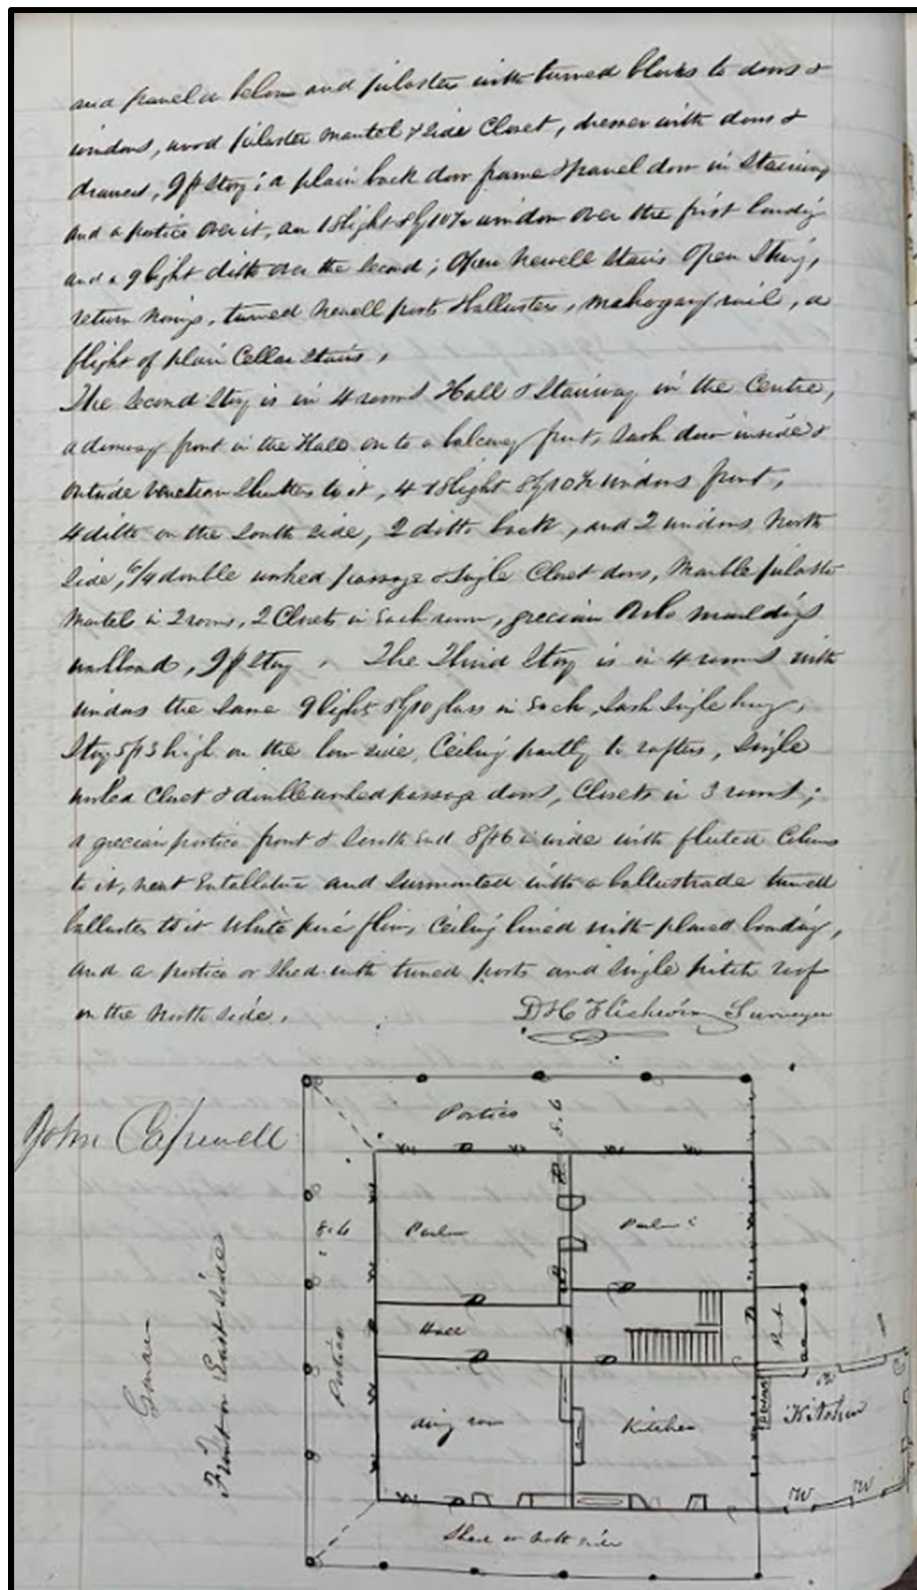 and panels below and pilaster with turned blocks to doors &
windows, wood pilaster mantel & side Closet, dresser with doors &
drawers, 9 ft Story; a plain back door frame & panel door in Stairway
and a portico over it, an 18 light 8 by 10 in window over the first landing
and a 9 light ditto over the Second; Open Newell Stairs Open String,
return Nosings, turned Newell posts & ballusters, mahogany rail, a
flight of plain Cellar Stairs,
The Second Story is in 4 rooms Hall & Stairway in the Centre,
a doorway front in the Hall on to a balcony front, Sash door inside &
outside venetian Shutters to it, 4 18 light 8 by 10 in windows front,
4 ditto on the South Side, 2 ditto back, and 2 windows North
Side, 6/4 double worked passage & Single Closet doors, Marble pilaster
Mantel in 2 rooms, 2 Closets in Each room, grecian mouldings
washboard, 9 ft Story. The Third Story is in 4 rooms with
windows the Same 9 lights 8 by 10 glass in Each, Sash Single hung,
Story 5 ft 3 high on the low side, Ceiling partly to rafters, Single
worked Closet & double worked passage doors, Closets in 3 rooms;
a grecian portico front & South End 8 ft 6 in wide with fluted Colums
to it, neat Entablature and Surmounted with a ballustrade turned
ballusters to it White pine floor, Ceiling lined with planed boarding,
and a portico or Shed with turned posts and Single pitch roof
on the North Side.
D H Flickwir Surveyor
Portico
8.6
John Capewell
Parlor
Parlor
8.6
Hall
Portico
Front on East Side
Kitchen
ding room
Kitchen
Shed on North Side